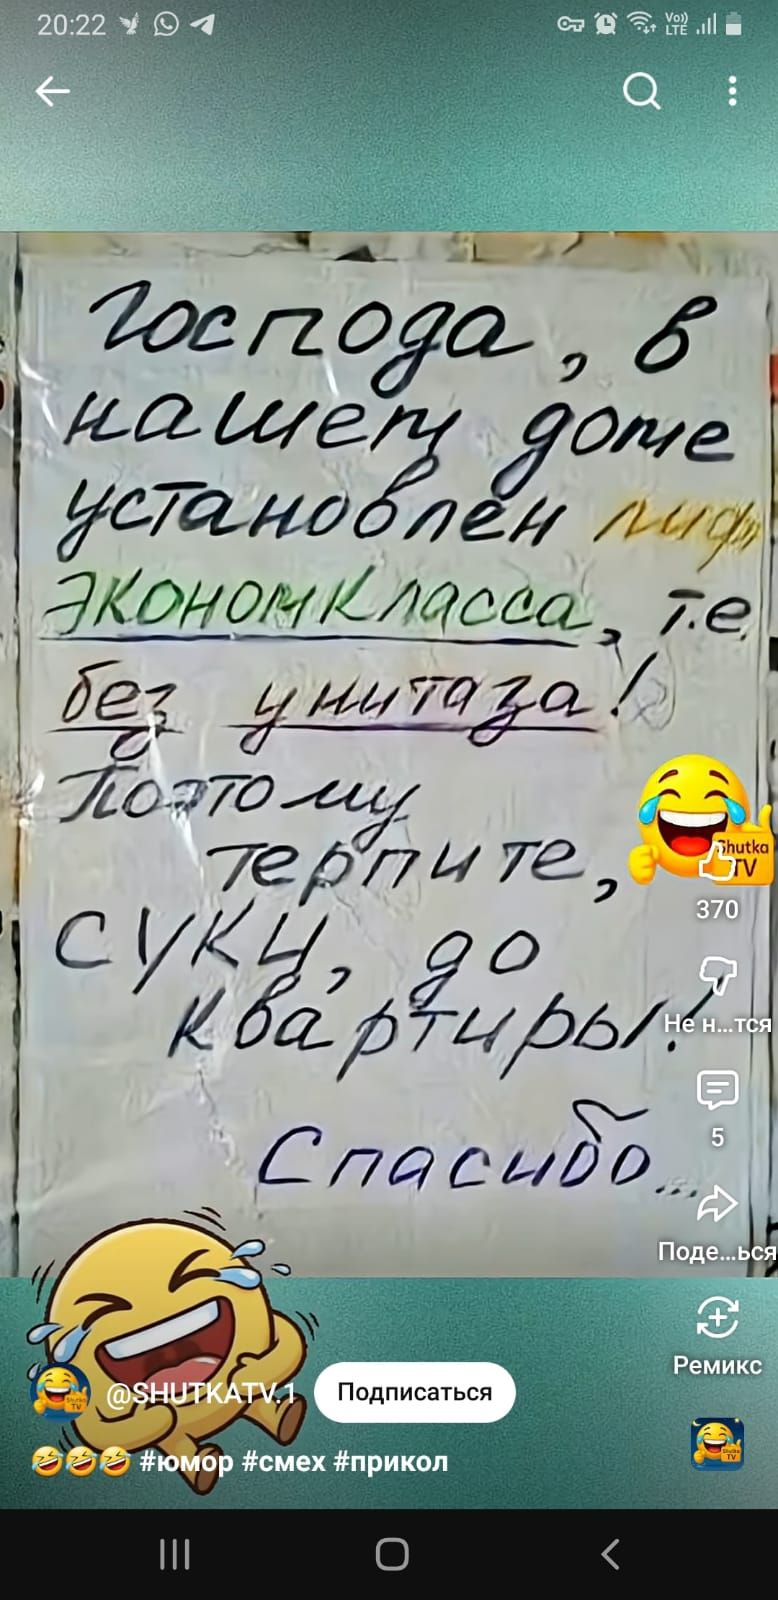 20:22
Vo)) LTE
Господа, в
нашем доме
установлен лифт
экономкласса, т.е.
без унитаза!
Поэтому
терпите,
суки, до
квартиры!
Спасибо...
Shutka
TV
370
Не н...тся
5
Поде...ься
Ремикс
@SHUTKATV.1
Подписаться
🤣🤣🤣 #юмор #смех #прикол